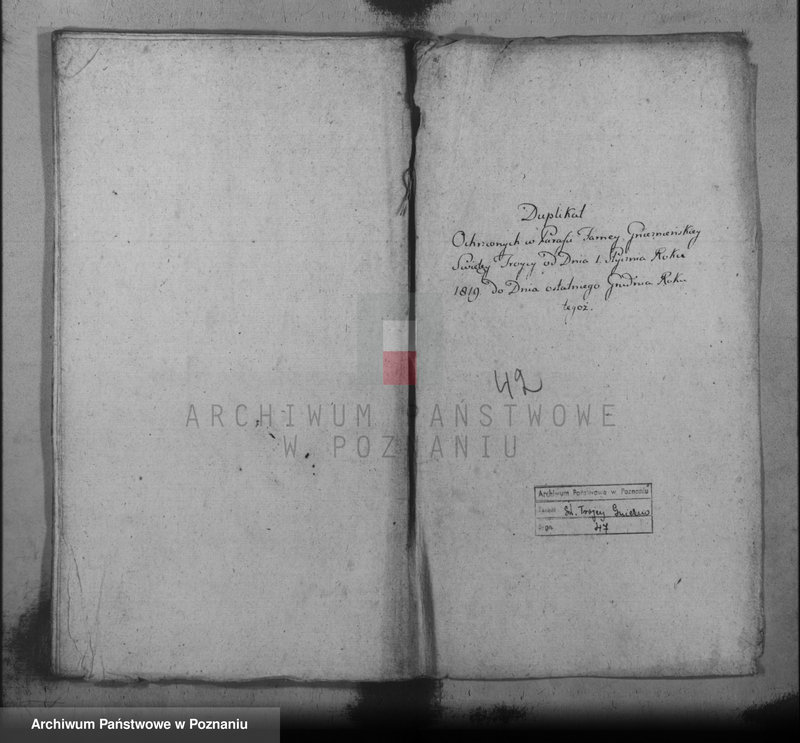 Duplikat
Ochrzconych w Parafii Farney Gnieznenskiey
Swiętey Troycy od Dnia 1. Stycznia Roku
1819 do Dnia ostatniego Grudnia Roku
tegoż.
42
ARCHIWUM PAŃSTWOWE
W POZNANIU
Archiwum Państwowe w Poznaniu
Zespół Św. Trójcy Gniezno
Sygn. 47
Archiwum Państwowe w Poznaniu